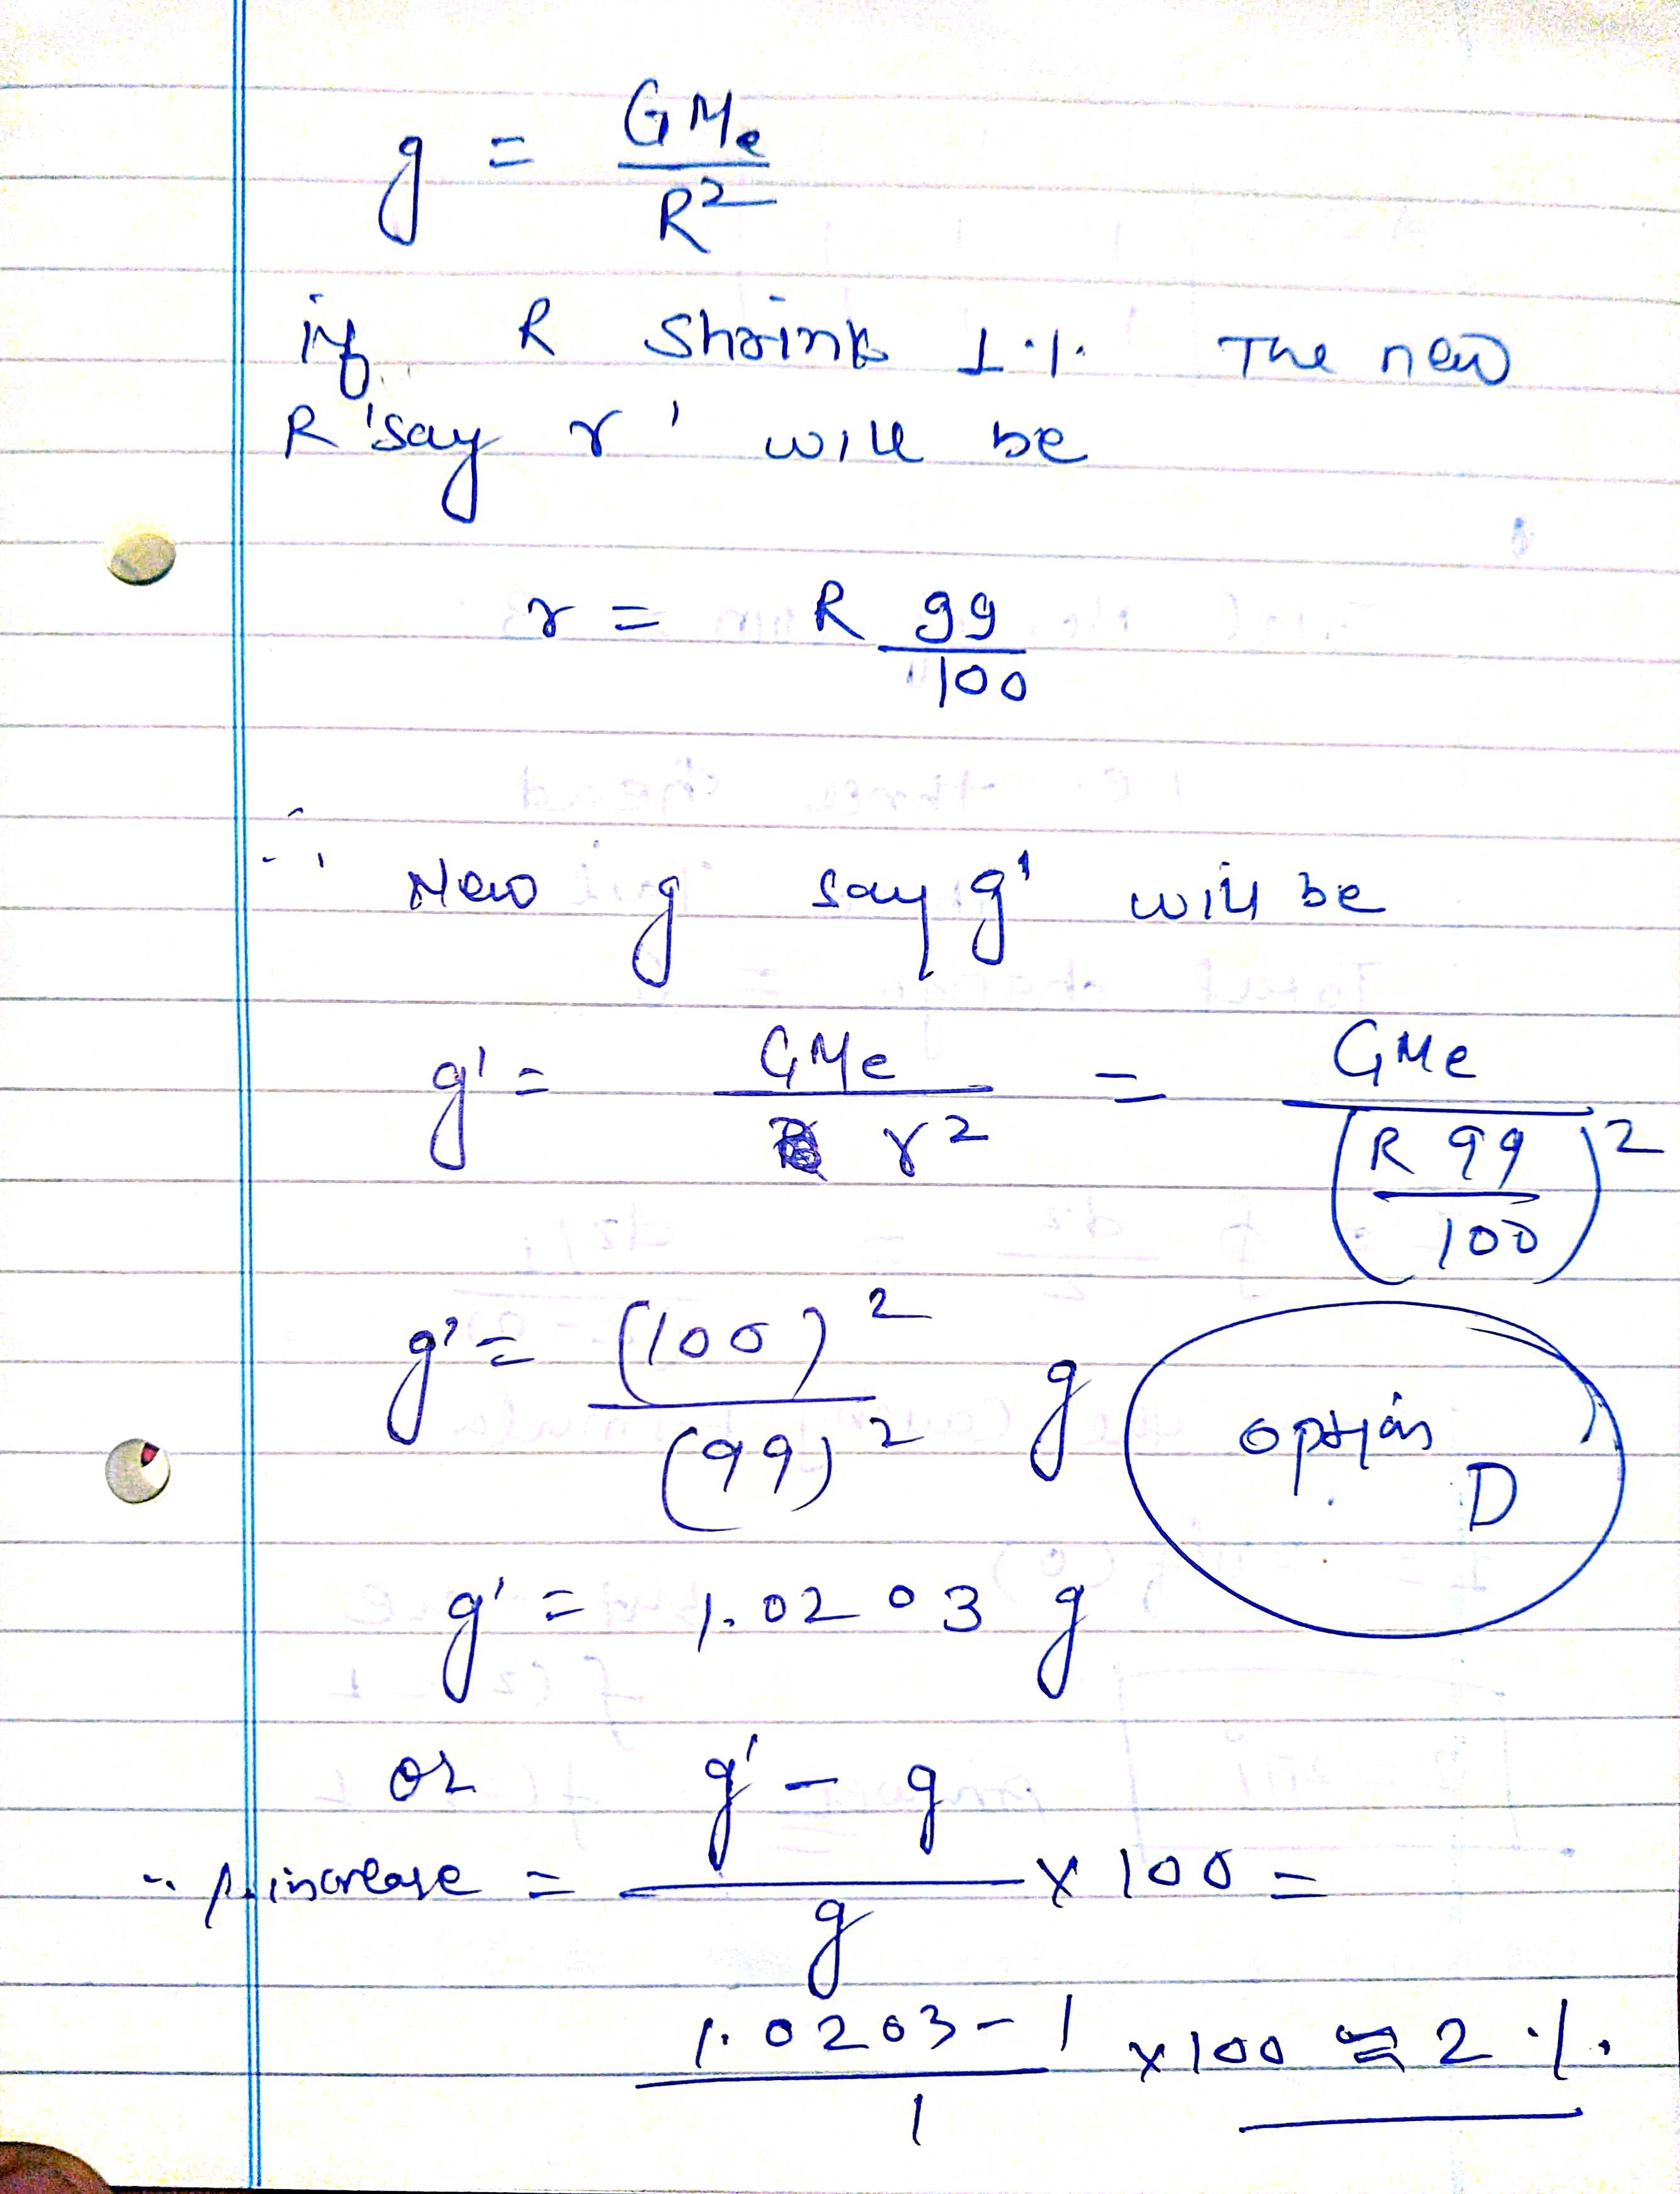 g = GMe / R²
if R shrink 1 % The new
R 'say r' will be
r = R 99/100
∴ New g say g' will be
g' = GMe / r² = GMe / (R 99/100)²
g' = (100)² / (99)² g
option D
g' = 1.0203 g
or g' - g
∴ % increase = ――― x 100 =
g
1.0203 - 1 / 1 x 100 ≈ 2 %